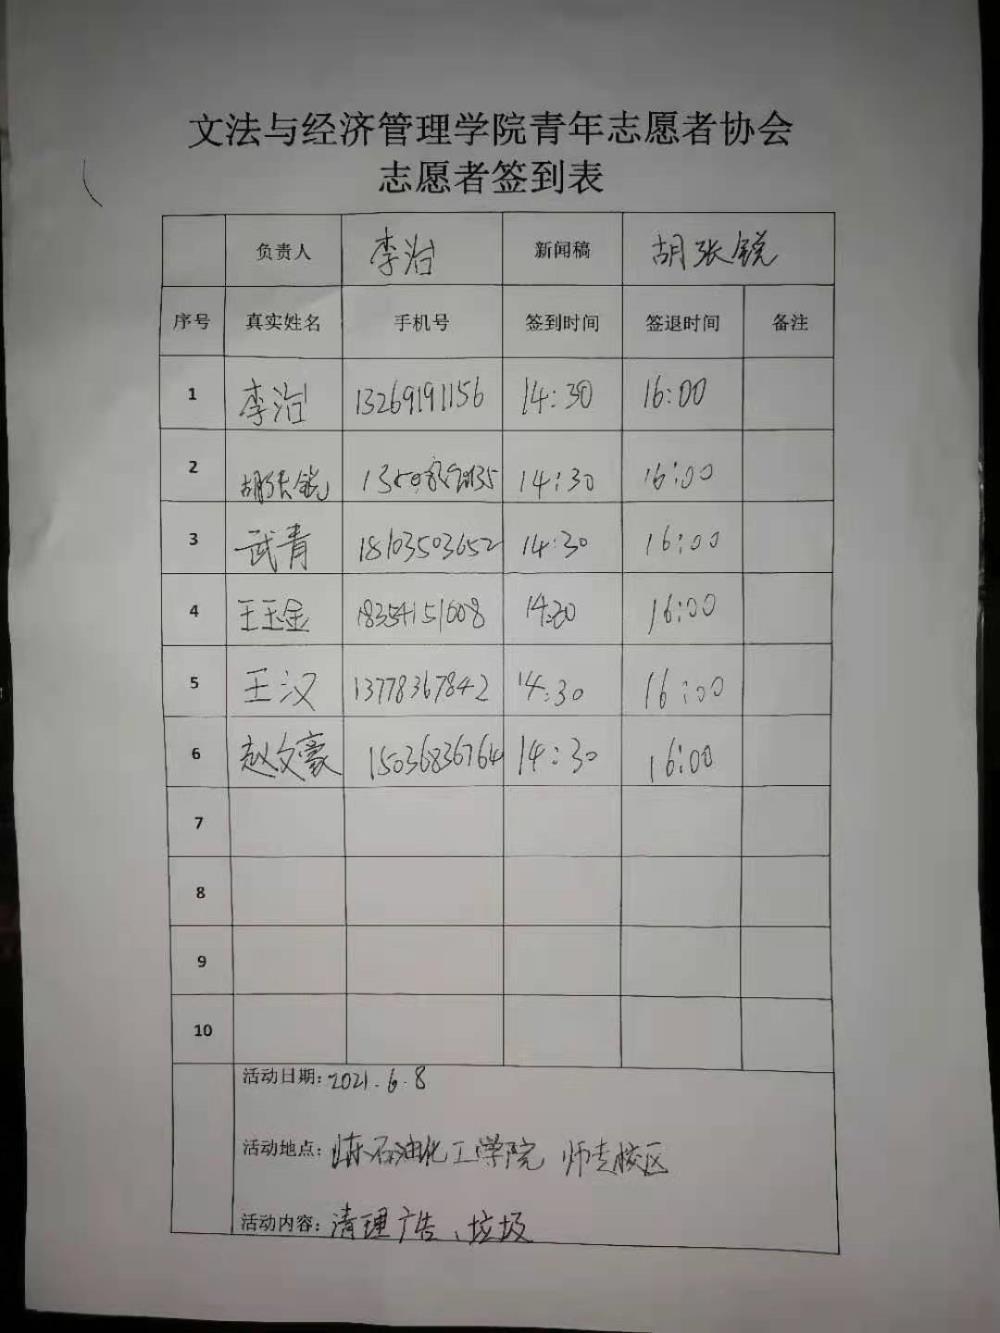 文法与经济管理学院青年志愿者协会
志愿者签到表
负责人 李治 新闻稿 胡张锐
序号 真实姓名 手机号 签到时间 签退时间 备注
1 李治 13269191156 14:30 16:00
2 胡张锐 14:30 16:00
3 武青 18103503652 14:30 16:00
4 王玉金 18354151608 16:00
5 王汉 13778367842 14:30 16:00
6 赵文豪 15036836764 14:30 16:00
7
8
9
10
活动日期: 2021.6.8
活动地点: 石油化工学院 师专校区
活动内容: 清理广告、垃圾